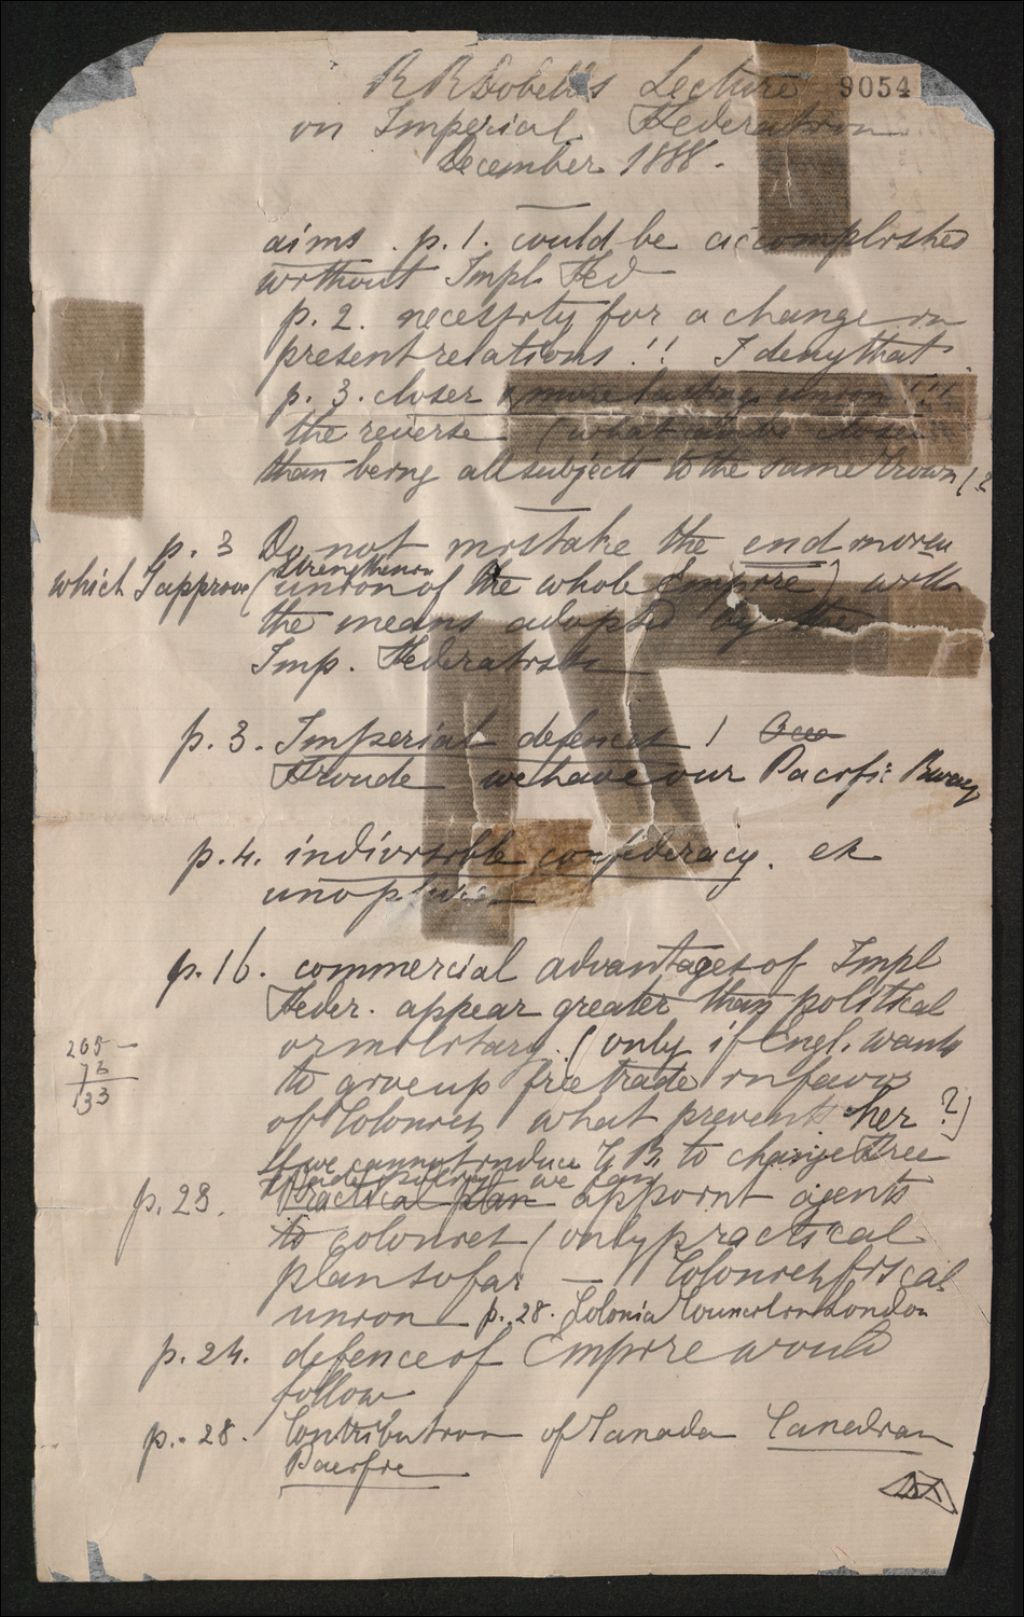 R R Dobell's Lecture 9054
on Imperial Federation
December 1888.
aims. p. 1. could be accomplished
without Impl. Fed
p. 2. necessity for a change in
present relations!! I deny that
p. 3. closer & more lasting union!!!
the reverse (what can be closer
than being all subjects to the same Crown)?
p. 3 Do not mistake the end
strengthening
which I approve (union of the whole Empire) with
the means adopted by the
Imp. Federatists
p. 3. Imperial defences!
Froude we have our Pacific Rway
p. 4. indivisible confederacy. ex
uno plures
p. 16. commercial advantages of Impl
Feder. appear greater than political
or military. (only if Engl. wants
to give up free trade in favor
of Colonies what prevents her?)
If we cannot induce G. B. to change Free
Trade policy we can
p. 23. Practical plan appoint agents
to colonies (only practical
plan so far — Colonies fiscal
union p. 28. Colonial Council in London
p. 24. defence of Empire would
follow
p. 28. Contribution of Canada Canadian
Pacific
205 —
72
133